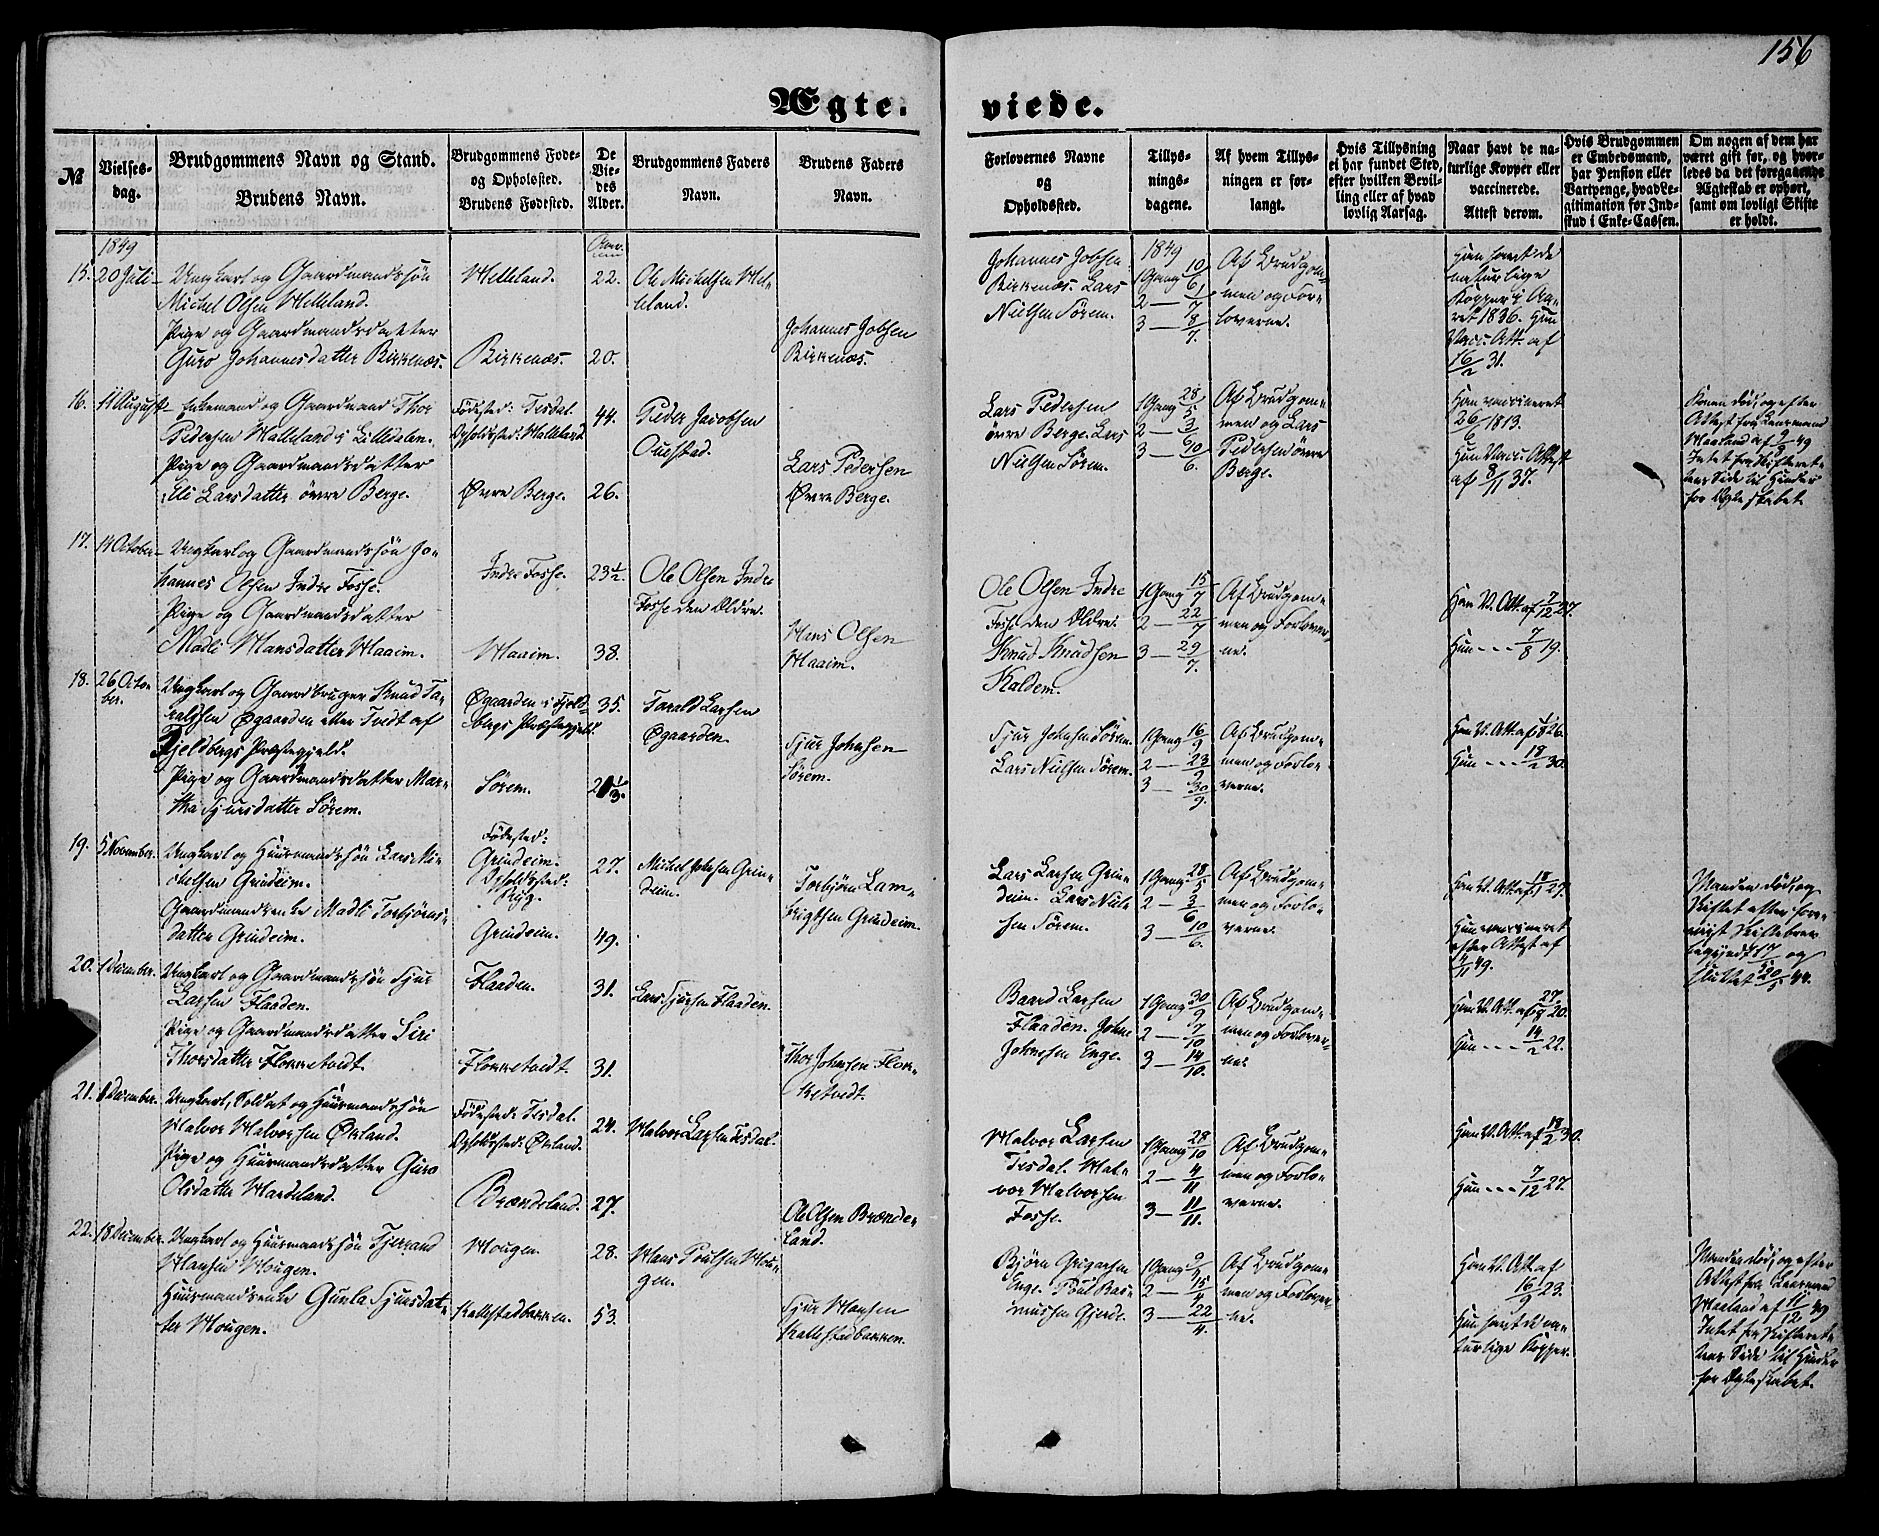 156
Ægte.
viede.
№
Vielses-
dag.
Brudgommens Navn og Stand.
Brudens Navn.
Brudgommens Føde-
og Opholdssted.
Brudens Fødested.
De
Vie-
des
Alder.
Brudgommens Faders
Navn.
Brudens Faders
Navn.
Forlovernes Navne
og
Opholdssted.
Tillys-
nings-
dagene.
Af hvem Tillys-
ningen er for-
langt.
Hvis Tillysning
ei har fundet Sted,
efter hvilken Bevil-
ling eller af hvad
lovlig Aarsag.
Naar havt de na-
turlige Kopper eller
vaccinerede.
Attest derom.
Hvis Brudgommen
er Embedsmand,
har Pension eller
Vartpenge, hvad Le-
gitimation for Ind-
skud i Enke-Cassen.
Om nogen af dem har
været gift før, og hvor-
ledes da det foregaaende
Ægteskab er ophørt,
samt om lovligt Skifte
er holdt.
1849
15. 20 Juli
Ungkarl og Gaardmandssøn
Michel Olsen Helleland.
Pige og Gaardmandsdatter
Guro Johannesdatter Birkenæs.
Helleland.
Birkenæs.
22.
20.
Ole Michelsen Hel-
leland.
Johannes Jobsen
Birkenæs.
Johannes Jobsen
Birkenæs. Lars
Nielsen Sørem.
1849
1 Gang 10/6
2 — 1/7
3 — 8/7.
Af Brudgom-
men og For-
loverne.
Han havt de
naturlige
Kopper i Aa-
ret 1836. Hun
Vacc. Att. af
16/2 31.
16. 11 August
Enkemand og Gaardmand Thor
Pedersen Halleland i Lilledalen.
Pige og Gaardmandsdatter
Eli Larsdatter øvre Berge.
Fødested: Tesdal.
Opholdssted: Halleland
Øvre Berge.
44.
26.
Peder Jacobsen
Ouestad.
Lars Pedersen
Øvre Berge.
Lars Pedersen
øvre Berge. Lars
Nielsen Sørem.
1 Gang 28/5
2 — 3/6
3 — 10/6.
Af Brudgom-
men og Lars
Pedersen øvre
Berge.
Han vaccineret
26/6 1813.
Hun Vacc. Attest
af 8/11 37.
Konen død og efter
Attest fra Lensmand
Haaland af 9/8 49
Intet fra Skifteret-
tens Side til Hinder
for Ægteskabet.
17. 14 October
Ungkarl og Gaardmandssøn Jo-
hannes Olsen Indre Fosse.
Pige og Gaardmandsdatter
Madli Hansdatter Haaim.
Indre Fosse.
Haaim.
23 1/2.
38.
Ole Olsen Indre
Fosse den Ældre.
Hans Olsen
Haaim.
Ole Olsen Indre
Fosse den Ældre.
Knud Knudsen
Kaldem.
1 Gang 15/7
2 — 22/7
3 — 29/7.
Af Brudgom-
men og Forlover-
ne.
Han V. Att. af 7/12 27.
Hun - - - 7/8 19.
18. 26 Octo-
ber.
Ungkarl og Gaardbruger Knud Ta-
raldsen Øgaarden eller Tvedt af
Fjeldbergs Præstegjeld.
Pige og Gaardmandsdatter Mar-
tha Sjursdatter Sørem.
Øgaarden i Fjeld-
bergs Præstegjeld.
Sørem.
35.
Tarald Larsen
Øgaarden.
Sjur Johnsen
Sørem.
Sjur Johnsen Sørem.
Lars Nielsen Sørem.
1 Gang 16/9
2 — 23/9
3 — 30/9.
Af Brudgom-
men og Forlo-
verne.
Hun - - - 18/2 30.
19. 5 November.
Ungkarl og Huusmandssøn Lars Mi-
chelsen Grindeim.
Gaardmandsenke Madli Torbjørns-
datter Grindeim.
Fødested:
Grindeim.
Opholdssted:
Ryg.
Grindeim.
27.
49.
Michel Johnsen Grin-
deim.
Torbjørn Lam-
brigtsen Grindeim.
Lars Larsen Grin-
deim. Lars Niel-
sen Sørem.
1 Gang 28/5
2 — 3/6
3 — 10/6.
Af Brudgom-
men og Forlo-
verne.
Hun vaccineret
efter Attest af
4/11 49.
Manden død og
Skiftet efter fore-
viist Skiftebrev
begyndt og
sluttet 44.
20. 1 December.
Ungkarl og Gaardmandssøn Sjur
Larsen Flaaden.
Pige og Gaardmandsdatter Siri
Thorsdatter Flokketvedt.
Flaaden.
Flokketvedt.
31.
31.
Lars Sjursen Flaaden.
Thor Johnsen Flok-
ketvedt.
Baard Larsen
Flaaden. John
Johnsen Enge.
1 Gang 30/9
2 — 7/10
3 — 14/10.
Af Brudgom-
men og Forlover-
ne.
Han V. Att. af 27/8 20.
Hun - - - 14/2 22.
21. December.
Ungkarl, Soldat og Huusmandssøn
Halvor Halvorsen Økland.
Pige og Huusmandsdatter Guro
Olsdatter Hardeland.
Fødested: Tesdal.
Opholdssted: Økland.
Brændeland.
24.
27.
Halvor Larsen Tesdal.
Ole Olsen Brænde-
land.
Halvor Larsen
Tesdal. Hal-
vor Halvorsen
Fosse.
1 Gang 28/10
2 — 4/11
3 — 11/11.
Af Brudgom-
men og Forlo-
verne.
Han V. Att. af 18/2 30.
Hun - - - 7/12 27.
22. 18 December.
Ungkarl og Huusmandssøn Tjerrand
Hansen Hougen.
Huusmandsenke Gunla Sjursdat-
ter Hougen.
Hougen.
Kallestadbakken.
28.
53.
Hans Poulsen Hou-
gen.
Sjur Hansen
Kallestadbakken.
Bjørn Grigarsen
Enge. Poul Ras-
mussen Gjerde.
1 Gang 9/4
2 — 15/4
3 — 22/4.
Af Brudgom-
men og Forlover-
ne.
Han V. Att. af
16/9 23.
Hun havt de na-
turlige Kopper.
Manden død, og efter
Attest fra Lensmand
Haaland af 11/12 49
Intet fra Skifteret-
tens Side til Hinder
for Ægteskabet.